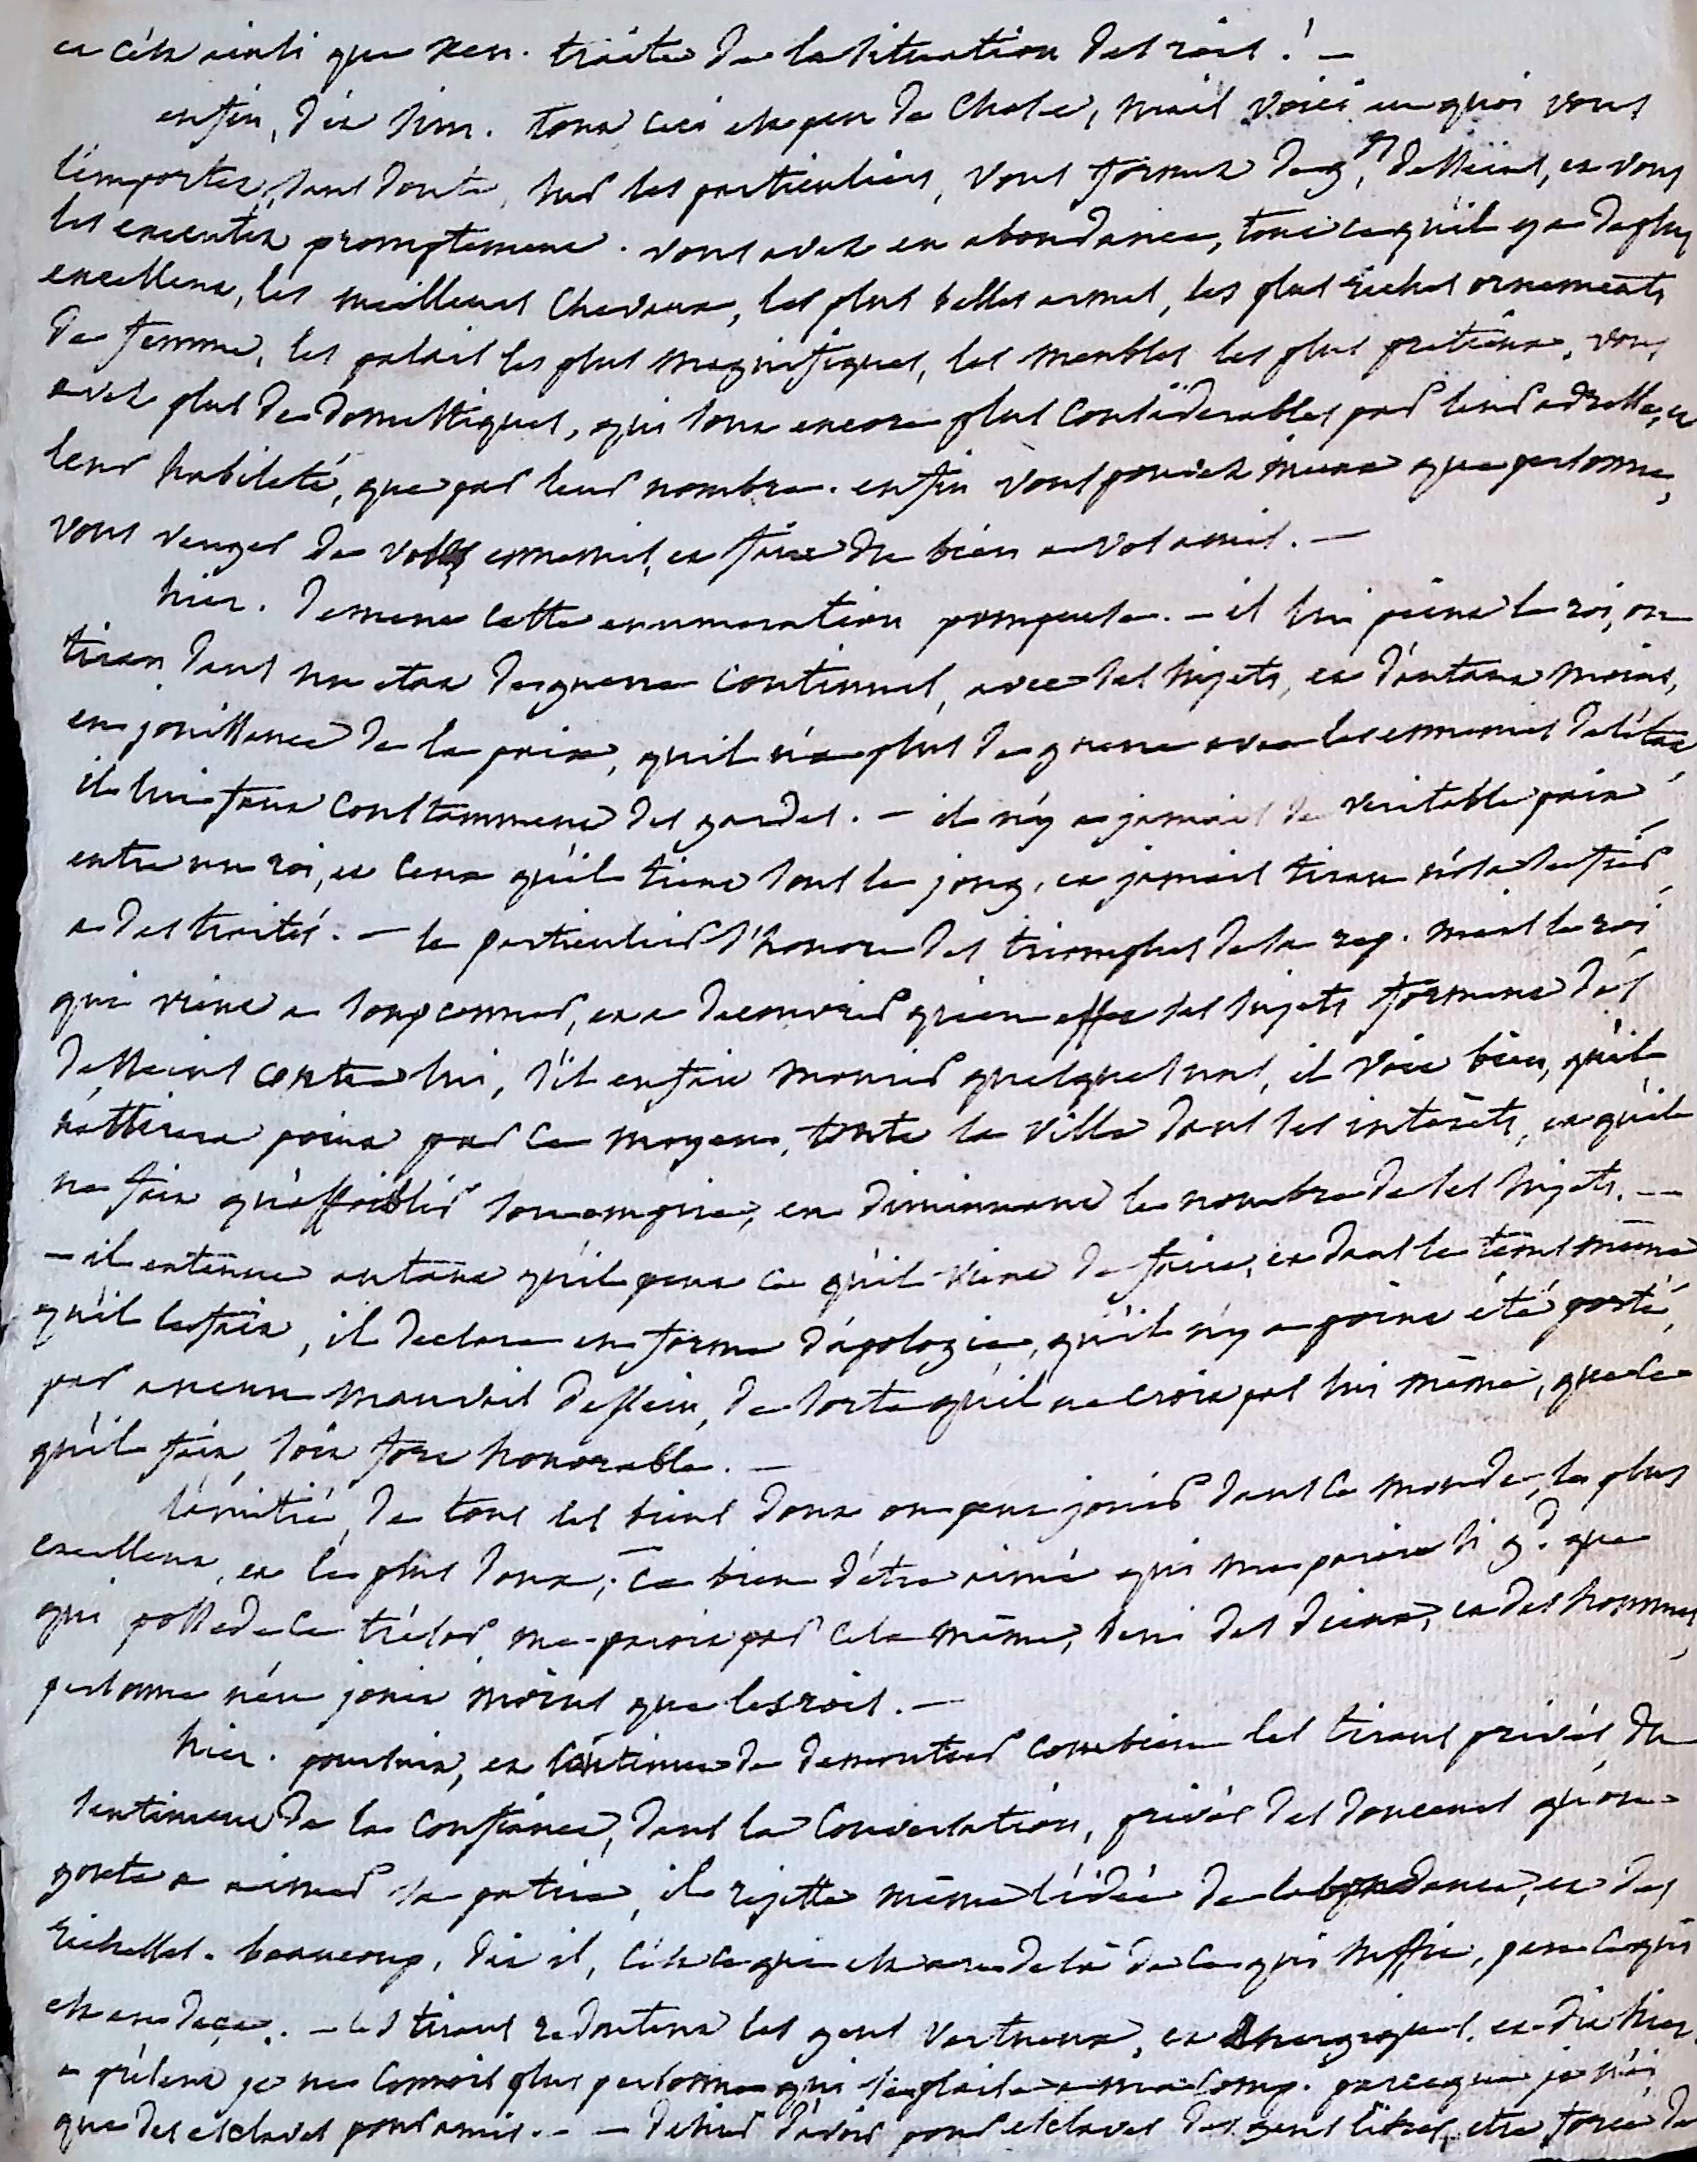 et c'est ainsi que xen. traite de la situation des rois! —
enfin, dit sim. tout ceci est peu de chose, mais voici en quoi vous
l'emportez, sans doute, sur les particuliers, vous formez de gds desseins, et vous
les executez promptement. vous avez en abondance, tout ce qu'il y a de plus
excellent, les meilleurs chevaux, les plus belles armes, les plus riches ornements
de femme, les palais les plus magnifiques, les meubles les plus pretieux, vous
avez plus de domestiques, qui sont encore plus considerables par leur adresse, et
leur habileté, que par leur nombre. enfin vous pouvez mieux que personne,
vous venger de vos ennemis, et faire du bien a vos amis. —
hier. dement cette enumeration pompeuse. — il lui peint le roi, ou
tiran dans un etat de guerre continuel, avec ses sujets, et d'autant moins,
en jouissance de la paix, qu'il n'a plus de guerre avec les ennemis de l'état
il lui faut constamment des gardes. — il n'y a jamais de veritable paix
entre un roi, et ceux qu'il tient sous le joug, et jamais tiran n'osa se fier
a des traités. — le particulier s'honore des triomphes de la rep. mais le roi
qui vient a soupconner, et a decouvrir qu'en effet ses sujets forment des
desseins contre lui, s'il en fait mourir quelques uns, il voit bien, qu'il
n'attirera point par ce moyen, toute la ville dans ses intérêts, et qu'il
ne fait qu'affoiblir son empire, en diminuant le nombre de ses sujets. —
— il extenue autant qu'il peut ce qu'il vient de faire, et dans le tems même
qu'il le fait, il declare en forme d'apologie, qu'il n'y a point été porté,
par aucun mauvais dessein, de sorte qu'il ne croit pas lui même, que ce
qu'il fait, soit fort honorable. —
l'amitié, de tous les biens dont on peut jouir dans le monde, le plus
excellent, et le plus doux; ce bien d'être aimé qui me paroit si gd. que
qui possede ce trésor, me paroit par cela même, beni des dieux, et des hommes,
personne n'en jouit moins que les rois. —
hier. poursuit, et continue de demontrer combien les tirans privés du
sentiment de la confiance, dans la conversation, privés des douceurs qu'on
goute a aimer sa patrie, il rejette même l'idée de l'abondance, et des
richesses. beaucoup, dit il, c'est ce qui est au delà de ce qui suffit, peu ce qui
est en deça. — les tirans redoutent les gens vertueux, et energiques. et dit hier.
a présent je ne connois plus personne qui se plaise a ma comp. parceque je n'ai
que des esclaves pour amis. — — desirer d'avoir pour esclaves des gens libres, etre forcé de